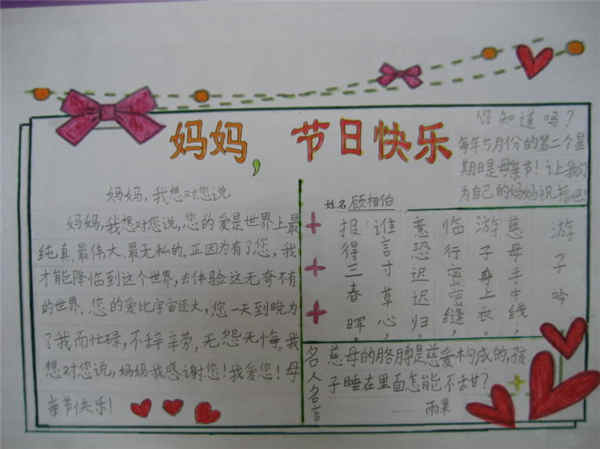 妈妈，节日快乐
妈妈，我想对您说
妈妈，我想对您说，您的爱是世界上最
纯真、最伟大、最无私的。正因为有了您，我
才能降临到这个世界，去体验这无奇不有
的世界。您的爱比宇宙还大，您一天到晚为
了我而忙碌，不辞辛劳，无怨无悔，我
想对您说，妈妈我感谢您！我爱您！母
亲节快乐！
您知道吗？
每年5月份的第二个星
期日是母亲节！让我们
为自己的妈妈说
姓名 顾相伯
游子吟
慈母手中线，
游子身上衣。
临行密密缝，
意恐迟迟归。
谁言寸草心，
报得三春晖。
名人名言
慈母的胳膊是慈爱构成的，孩
子睡在里面怎能不甜？
——雨果